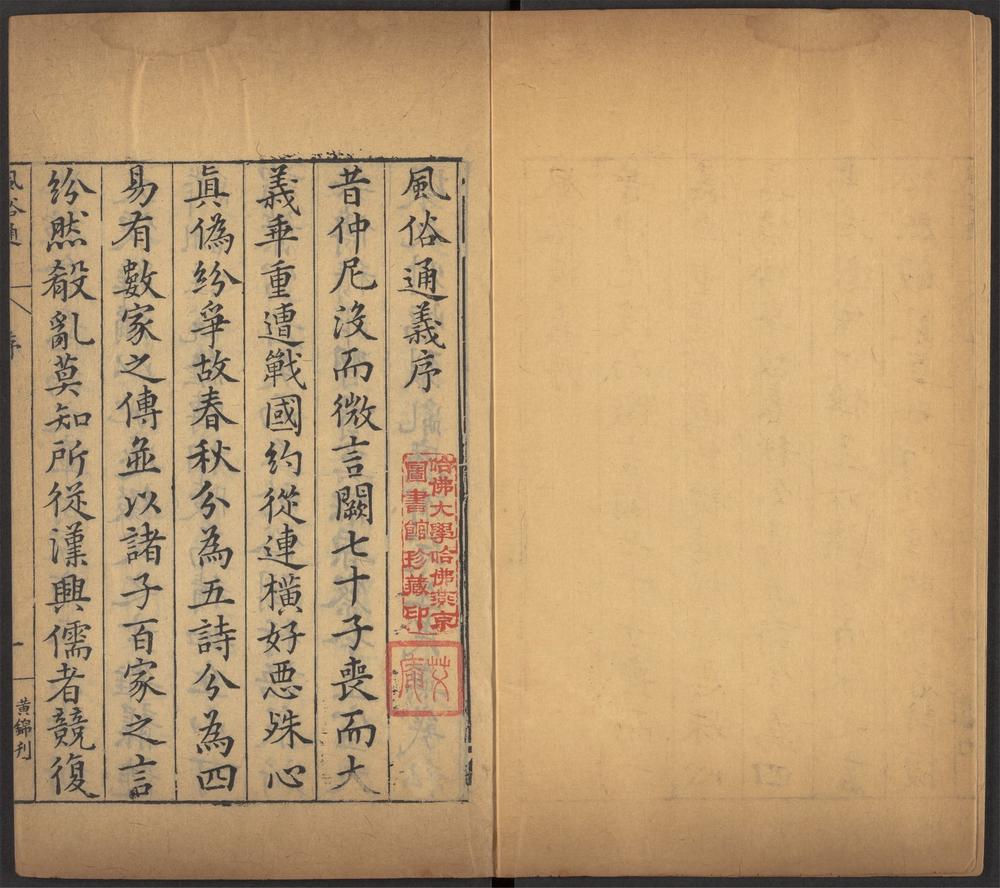 風俗通義序
昔仲尼沒而微言闕七十子喪而大
義乖重遭戰國約從連橫好惡殊心
眞偽紛爭故春秋分為五詩分為四
易有數家之傳並以諸子百家之言
紛然殽亂莫知所從漢興儒者競復
風俗通 序 一
黃錦刋
哈佛大學哈佛燕京
圖書館珍藏印